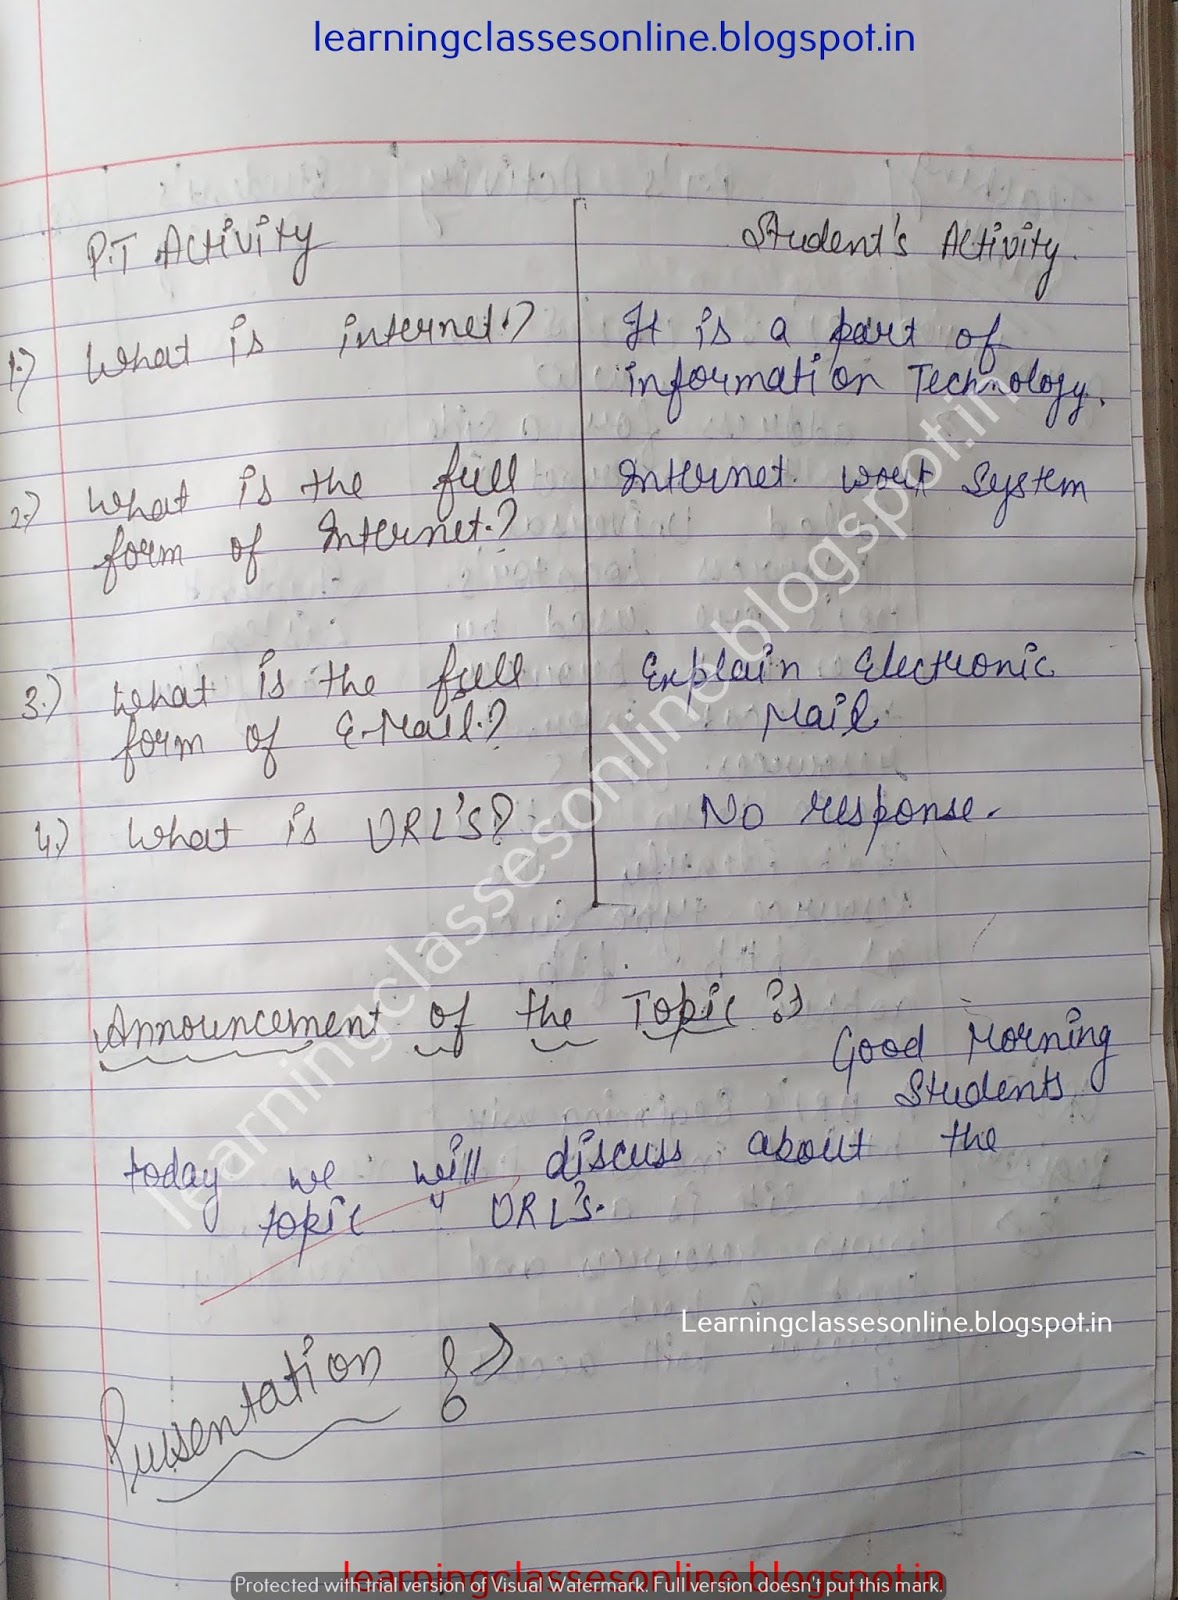 learningclassesonline.blogspot.in
P.T Activity
Student's Activity.
1.) What is internet.?
It is a part of
information Technology.
2.) What is the full
form of Internet.?
Internet work System
3.) What is the full
form of E-Mail.?
Explain Electronic
Mail
4.) What is URL'S?
No response.
Announcement of the Topic :→
Good Morning
Students
today we will discuss about the
topic " URL's.
Learningclassesonline.blogspot.in
Presentation :→
learningclassesonline.blogspot.in
learningclassesonline.blogspot.in
Protected with trial version of Visual Watermark. Full version doesn't put this mark.